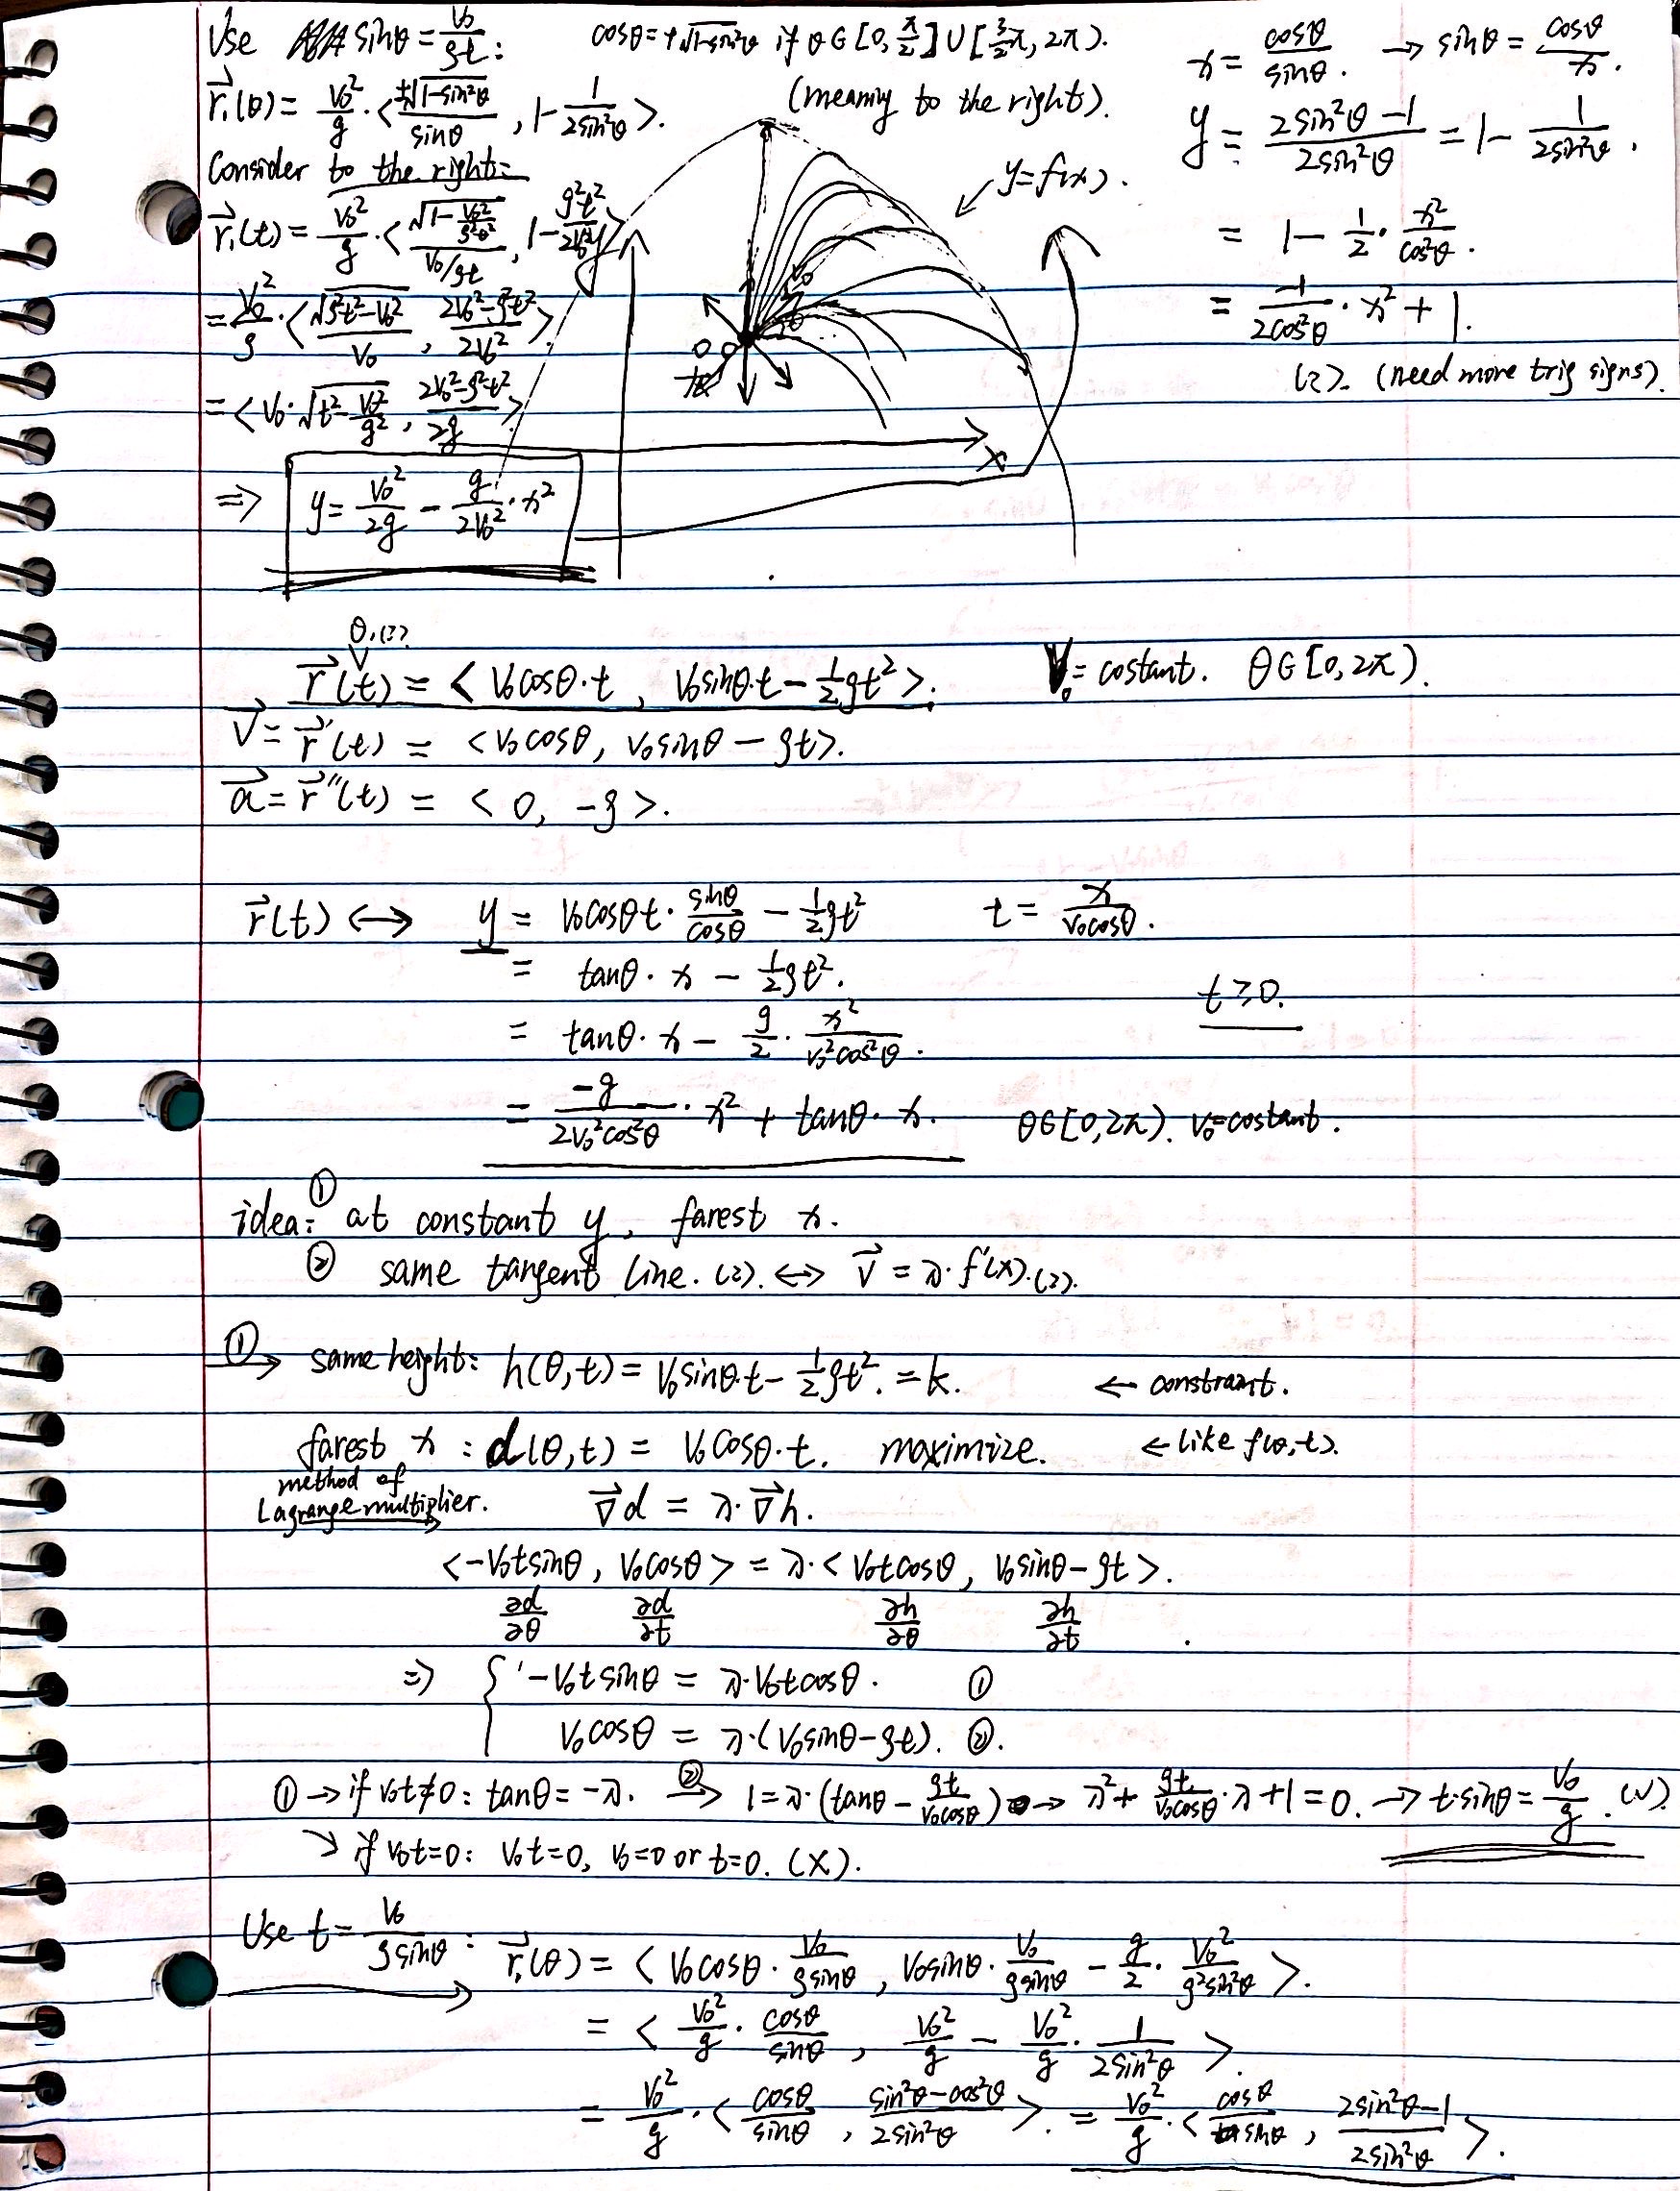 Use sinθ = v₀/gt :
cosθ = +√(1-sin²θ) if θ∈[0, π/2]∪[3/2π, 2π).
(meaning to the right).
r⃗₁(θ) = v₀²/g · < ±√(1-sin²θ)/sinθ , 1 - 1/(2sin²θ) >.
Consider to the right:
r⃗₁(t) = v₀²/g · < √(1 - v₀²/g²t²)/(v₀/gt) , 1 - g²t²/2v₀² >
= v₀²/g · < √(g²t²-v₀²)/v₀ , (2v₀²-g²t²)/2v₀² >.
= < v₀·√(t² - v₀²/g²) , (2v₀²-g²t²)/2g >
⇒ y = v₀²/2g - g/2v₀² · x²
y
y = f(x).
v₀
θ
O
x
x = cosθ/sinθ. → sinθ = cosθ/x.
y = (2sin²θ - 1)/(2sin²θ) = 1 - 1/(2sin²θ).
= 1 - 1/2 · x²/cos²θ.
= -1/(2cos²θ) · x² + 1.
(?). (need more trig signs).
θ,(?)
r⃗(t) = < v₀cosθ·t , v₀sinθ·t - 1/2gt² >. v₀ = costant. θ∈[0, 2π).
v⃗ = r⃗'(t) = < v₀cosθ, v₀sinθ - gt >.
a⃗ = r⃗''(t) = < 0, -g >.
r⃗(t) ↔ y = v₀cosθt · sinθ/cosθ - 1/2gt² t = x/(v₀cosθ).
= tanθ · x - 1/2gt².
t ≥ 0.
= tanθ · x - g/2 · x²/(v₀²cos²θ).
= -g/(2v₀²cos²θ) · x² + tanθ · x. θ∈[0,2π). v₀=costant.
idea: ① at constant y, farest x.
② same tangent line. (?). ↔ v⃗ = λ·f'(x).(?).
① → same height: h(θ,t) = v₀sinθ·t - 1/2gt². = k. ← constraint.
farest x : d(θ,t) = v₀cosθ·t. maximize. ← like f(θ,t).
method of
Lagrange multiplier. ∇⃗d = λ·∇⃗h.
< -v₀tsinθ , v₀cosθ > = λ·< v₀tcosθ, v₀sinθ - gt >.
∂d/∂θ ∂d/∂t ∂h/∂θ ∂h/∂t
⇒ { -v₀tsinθ = λ·v₀tcosθ. ①
v₀cosθ = λ·(v₀sinθ - gt). ②.
① → if v₀t≠0 : tanθ = -λ. ②→ 1 = λ·(tanθ - gt/(v₀cosθ)) → λ² + gt/(v₀cosθ) · λ + 1 = 0. → t·sinθ = v₀/g. (√).
↘ if v₀t=0 : v₀t=0, v₀=0 or t=0. (×).
Use t = v₀/(gsinθ) : r⃗₁(θ) = < v₀cosθ · v₀/(gsinθ) , v₀sinθ · v₀/(gsinθ) - g/2 · v₀²/(g²sin²θ) >.
= < v₀²/g · cosθ/sinθ , v₀²/g - v₀²/g · 1/(2sin²θ) >.
= v₀²/g · < cosθ/sinθ , (sin²θ-cos²θ)/(2sin²θ) >. = v₀²/g · < cosθ/sinθ , (2sin²θ-1)/(2sin²θ) >.